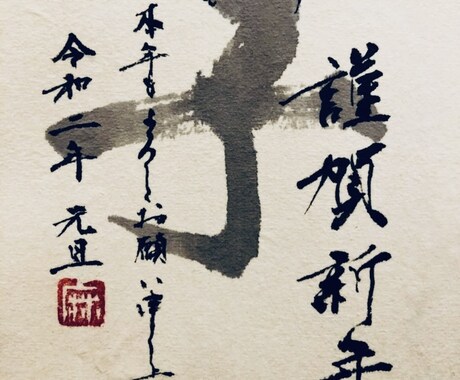 謹賀新年
子
本年もよろしくお願い申し上
令和二年 元旦